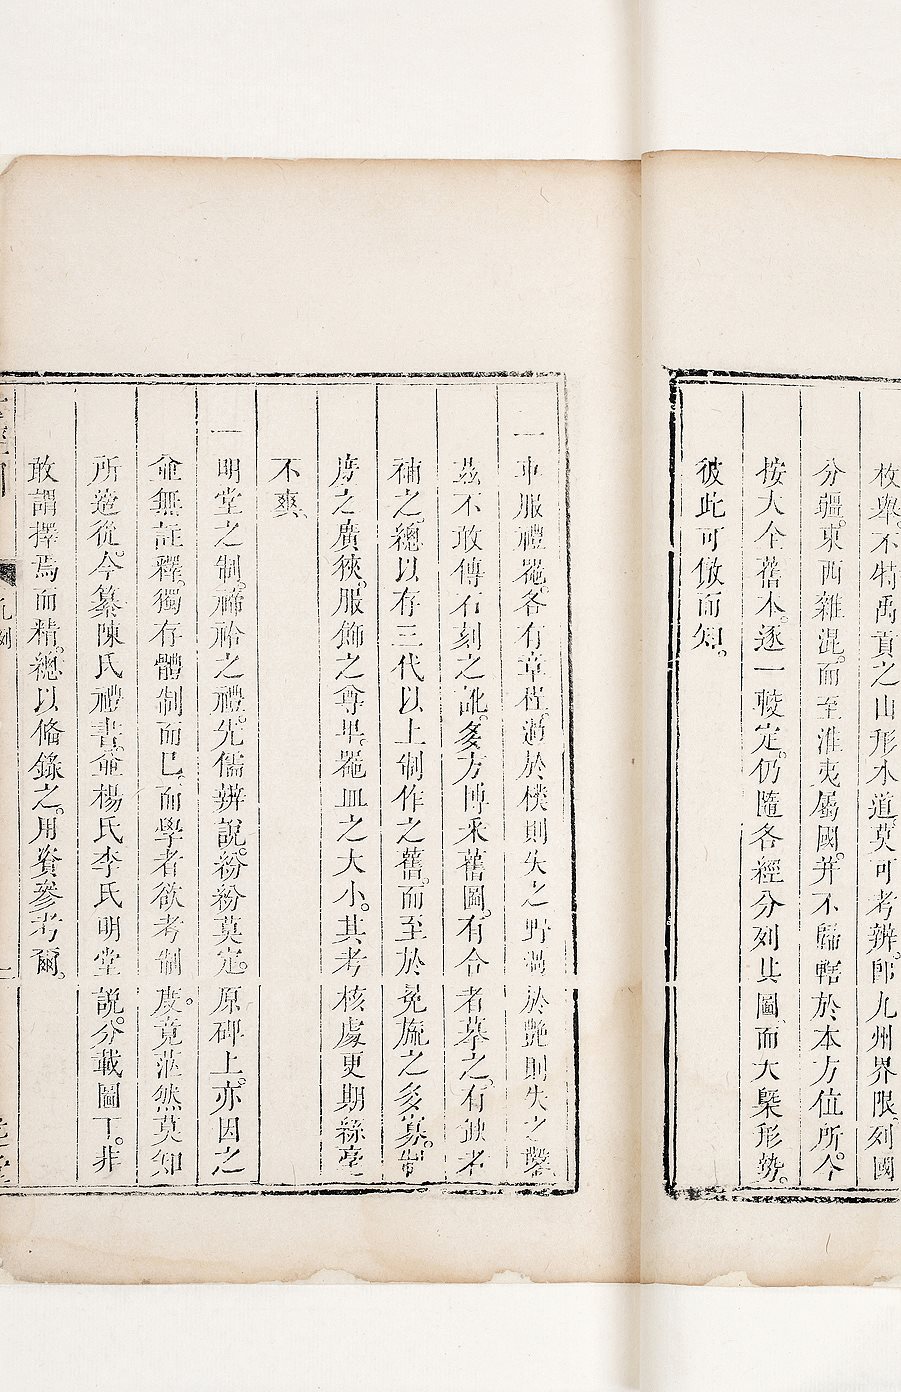 枚舉。不特禹貢之山形水道莫可考辨。即九州界限。列國
分疆。東西雜混。而至淮夷屬國。并不歸轄於本方位所。今
按大全舊本。逐一較定。仍隨各經分列其圖而大槩形勢。
彼此可倣而知。
一車服禮器。各有章程。過於樸則失之野。過於艷則失之鑿。
茲不敢傳石刻之訛。多方博采舊圖。有合者摹之。有蝕者
補之。總以存三代以上制作之舊。而至於冕旒之多寡。制
度之廣狹。服飾之尊卑。器皿之大小。其考核處更期絲毫
不爽。
一明堂之制。禘祫之禮。先儒辨說。紛紛莫定。原碑上。亦因之
並無註釋。獨存體制而已。而學者欲考制度。竟茫然莫知
所適從。今纂陳氏禮書。並楊氏李氏明堂說。分載圖下。非
敢謂擇焉而精。總以備錄之。用資參考爾。
凡例